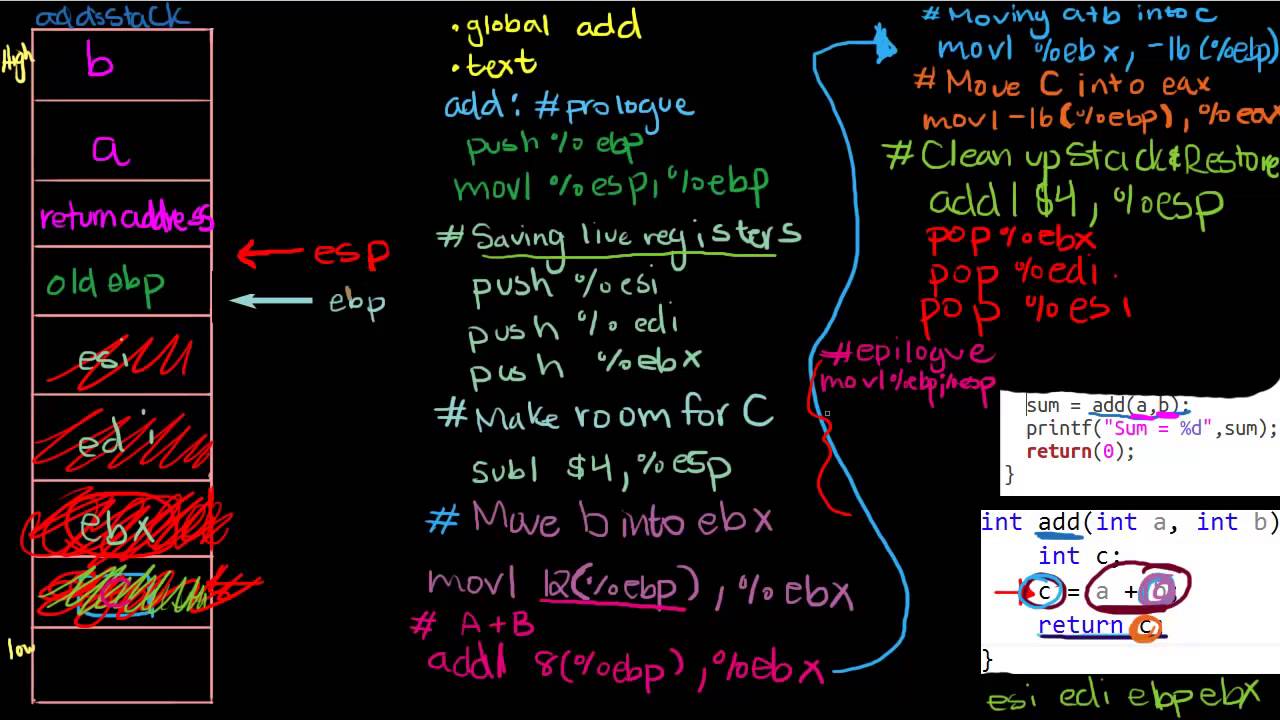 adds stack
High
b
a
return address
esp
old ebp
ebp
esi
edi
ebx
low
.global add
.text
add: #prologue
push %ebp
movl %esp, %ebp
# Saving live registers
push %esi
push %edi
push %ebx
# Make room for C
subl $4, %esp
# Move b into ebx
movl 12(%ebp), %ebx
# A+B
addl 8(%ebp), %ebx
# Moving a+b into c
movl %ebx, -16(%ebp)
# Move C into eax
movl -16(%ebp), %eax
# Clean up Stack & Restore
addl $4, %esp
pop %ebx
pop %edi
pop %esi
#epilogue
movl %ebp, %esp
sum = add(a,b);
printf("Sum = %d",sum);
return(0);
}
int add(int a, int b)
int c;
c = a + b
return c;
}
esi edi ebp ebx